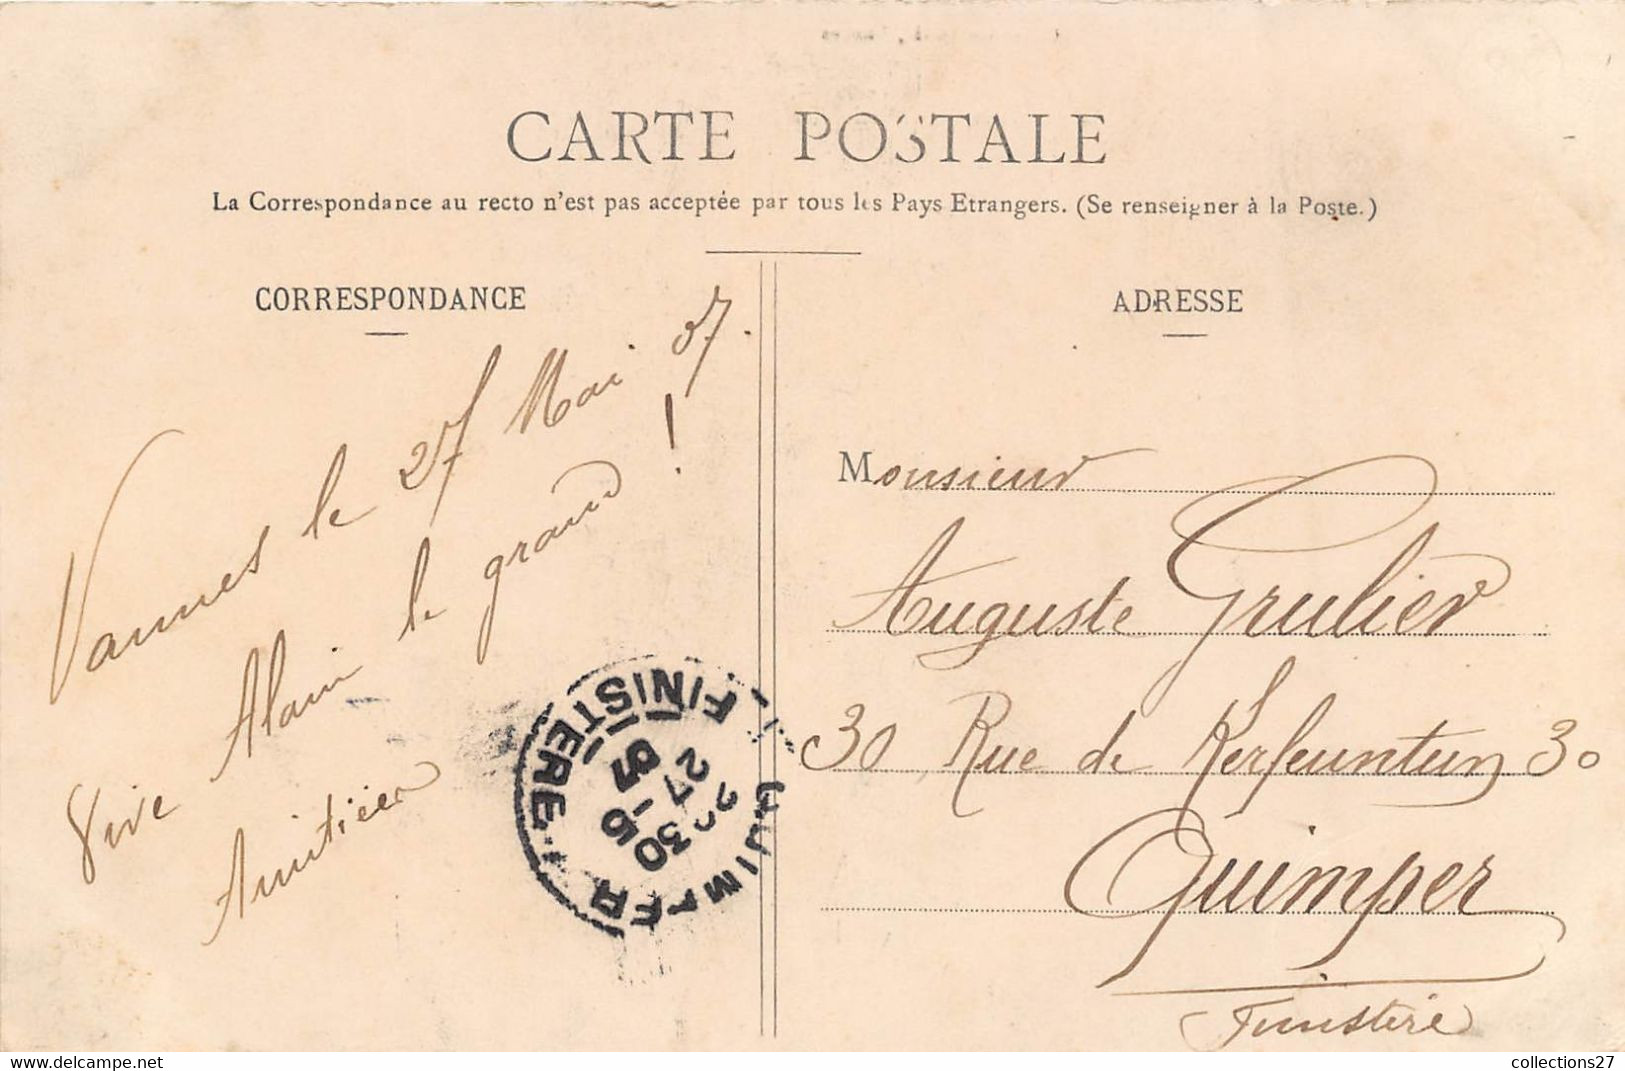 CARTE POSTALE
La Correspondance au recto n'est pas acceptée par tous les Pays Etrangers. (Se renseigner à la Poste.)
CORRESPONDANCE
Vannes le 27 Mai 07.
Vive Alain le grand !
Amitiés
ADRESSE
Monsieur
Auguste Grulier
30 Rue de Kerfeunteun 30
Quimper
Finistère
QUIMPER
FINISTERE
30
27-5
07
collections27